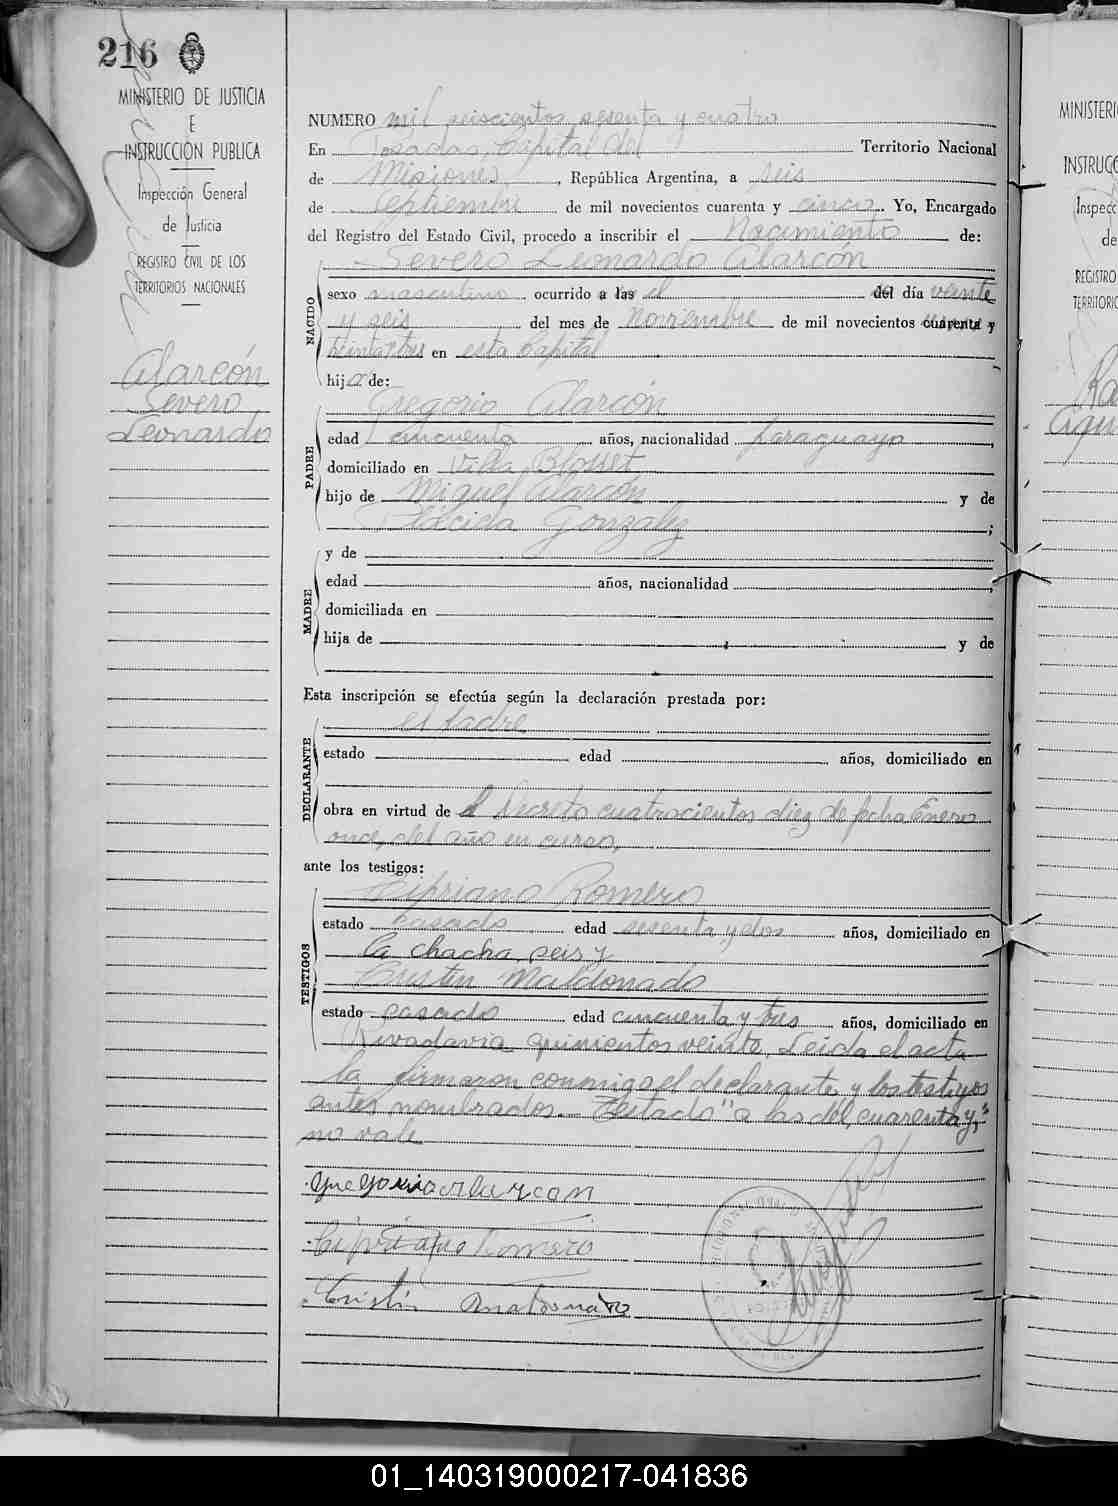 216
MINISTERIO DE JUSTICIA
E
INSTRUCCIÓN PUBLICA
Inspección General
de Justicia
REGISTRO CIVIL DE LOS
TERRITORIOS NACIONALES
Alarcón
Severo
Leonardo
NUMERO mil seiscientos sesenta y cuatro
En Posadas, Capital del Territorio Nacional
de Misiones, República Argentina, a seis
de Septiembre de mil novecientos cuarenta y cinco. Yo, Encargado
del Registro del Estado Civil, procedo a inscribir el Nacimiento de:
Severo Leonardo Alarcón
NACIDO
sexo masculino, ocurrido a las el del día veinte
y seis del mes de Noviembre de mil novecientos cuarenta y
treinta y tres en esta Capital
hijo de:
Gregorio Alarcón
PADRE
edad cincuenta años, nacionalidad Paraguaya,
domiciliado en Villa Blosset
hijo de Miguel Alarcón y de
Plácida González;
y de
MADRE
edad años, nacionalidad
domiciliada en
hija de y de
Esta inscripción se efectúa según la declaración prestada por:
el padre
DECLARANTE
estado edad años, domiciliado en
obra en virtud de el Decreto cuatrocientos diez de fecha Enero
once, del año en curso,
ante los testigos:
Cipriano Romero
TESTIGOS
estado casado edad sesenta y dos años, domiciliado en
la chacha seis y
Cristin Maldonado
estado casado edad cincuenta y tres años, domiciliado en
Rivadavia quinientos veinte. Leida el acta
la firmaron conmigo el declarante y los testigos
antes nombrados.- Testado "a las del, cuarenta y,"
no vale
Cipriano Romero
Cristin
MINISTERI
INSTRUCC
Inspecc
de
REGISTRO
TERRITORIO
01_140319000217-041836